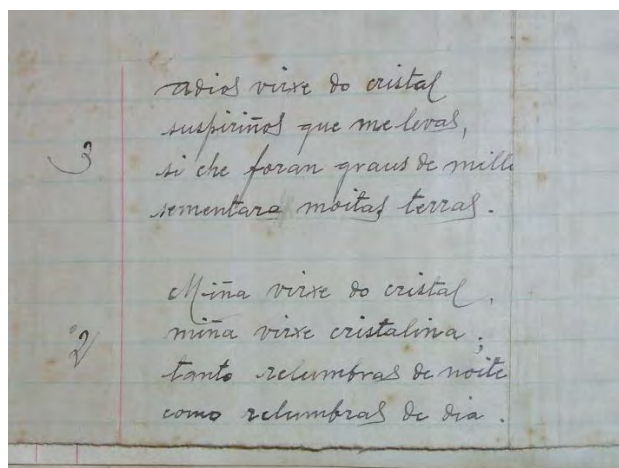 3
adios virxe do cristal
suspiriños que me levas,
si che foran graus de millo
sementara moitas terras.
2
Miña virxe do cristal,
miña virxe cristalina;
tanto relumbras de noite
como relumbras de dia.